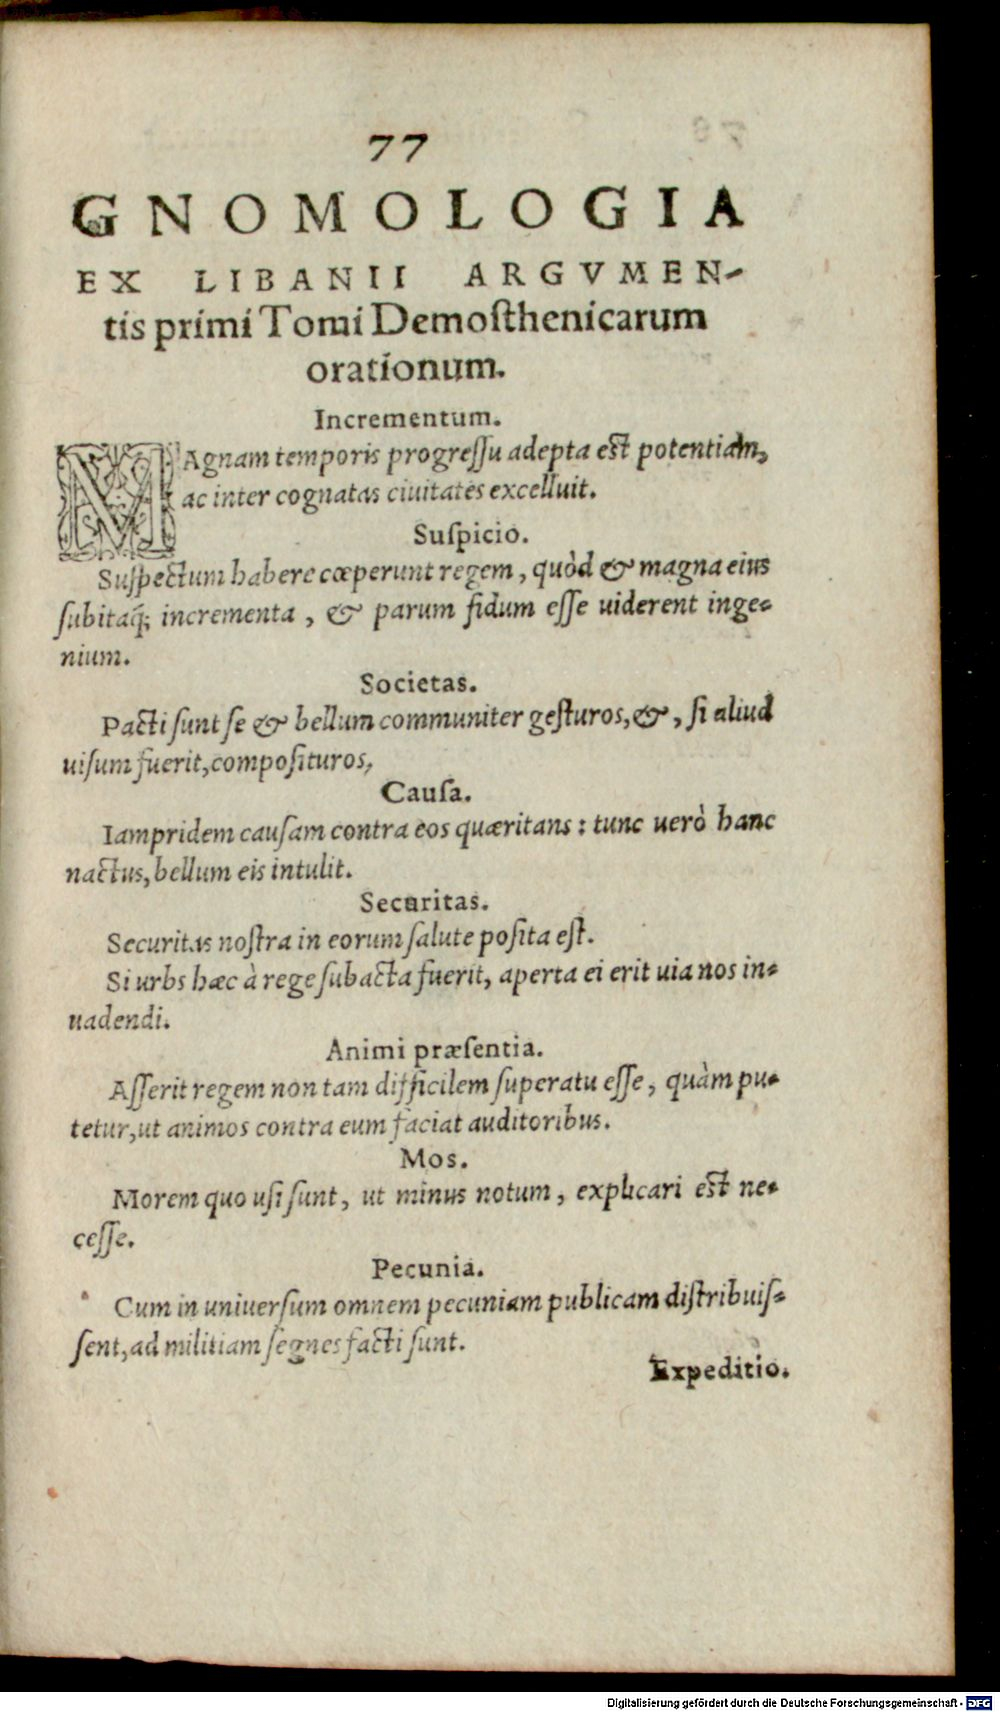 77
GNOMOLOGIA
EX LIBANII ARGVMEN-
tis primi Tomi Demoſthenicarum
orationum.
Incrementum.
MAgnam temporis progreſſu adepta est potentiam,
ac inter cognatas ciuitates excelluit.
Suſpicio.
Suſpectum habere cœperunt regem, quòd & magna eius
ſubitaq́; incrementa, & parum fidum eſſe uiderent inge-
nium.
Societas.
Pacti ſunt ſe & bellum communiter geſturos, &, ſi aliud
uiſum fuerit, compoſituros,
Cauſa.
Iampridem cauſam contra eos quæritans: tunc uerò hanc
nactus, bellum eis intulit.
Securitas.
Securitas noſtra in eorum ſalute poſita eſt.
Si urbs hæc à rege ſubacta fuerit, aperta ei erit uia nos in-
uadendi.
Animi præſentia.
Aſſerit regem non tam difficilem ſuperatu eſſe, quàm pu-
tetur, ut animos contra eum faciat auditoribus.
Mos.
Morem quo uſi ſunt, ut minus notum, explicari est ne-
ceſſe.
Pecunia.
Cum in uniuerſum omnem pecuniam publicam diſtribuiſ-
ſent, ad militiam ſegnes facti ſunt.
Expeditio.
Digitalisierung gefördert durch die Deutsche Forschungsgemeinschaft - DFG